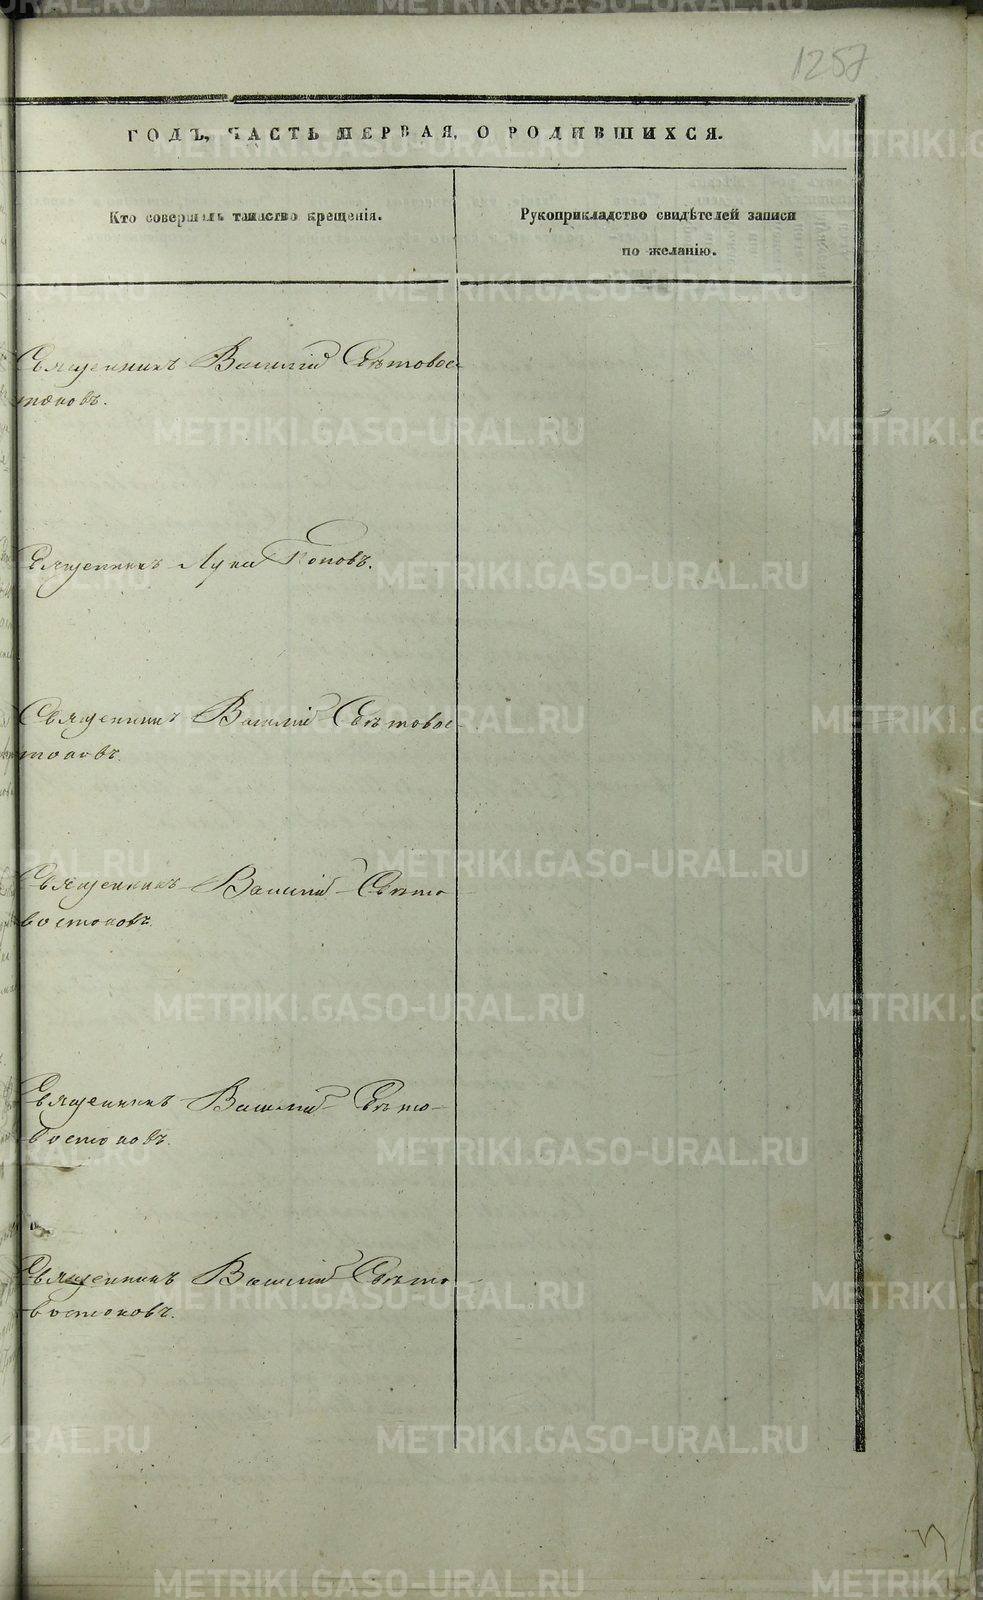 1257
ГОДЪ, ЧАСТЬ ПЕРВАЯ, О РОДИВШИХСЯ.
Кто совершалъ таинство крещенія.
Рукоприкладство свидѣтелей записи
по желанію.
Священникъ Василій Свѣтовос-
токовъ.
Священникъ Лука Поповъ.
Священникъ Василій Свѣтовос-
токовъ.
Священникъ Василій Свѣто
востоковъ.
Священникъ Василій Свѣто-
востоковъ.
Священникъ Василій Свѣто
востоковъ.
METRIKI.GASO-URAL.RU